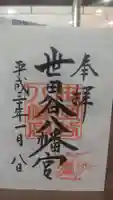 奉拝
世田谷八幡宮
平成三十年一月八日